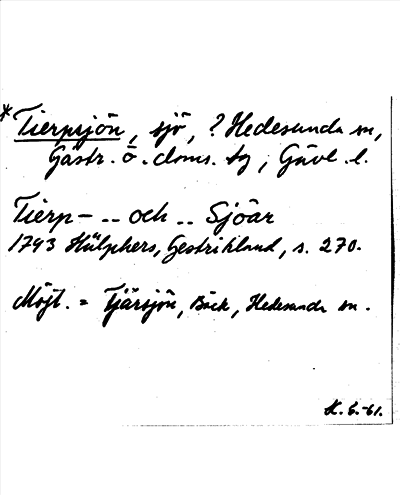 *Tierpsjön, sjö, ? Hedesunda sn,
Gästr. ö. doms. tg, Gävl. l.
Tierp- -- och -- Sjöar
1793 Hülphers, Gestrikland, s. 270.
Möjl. = Tjärsjön, Bäck, Hedesunda sn.